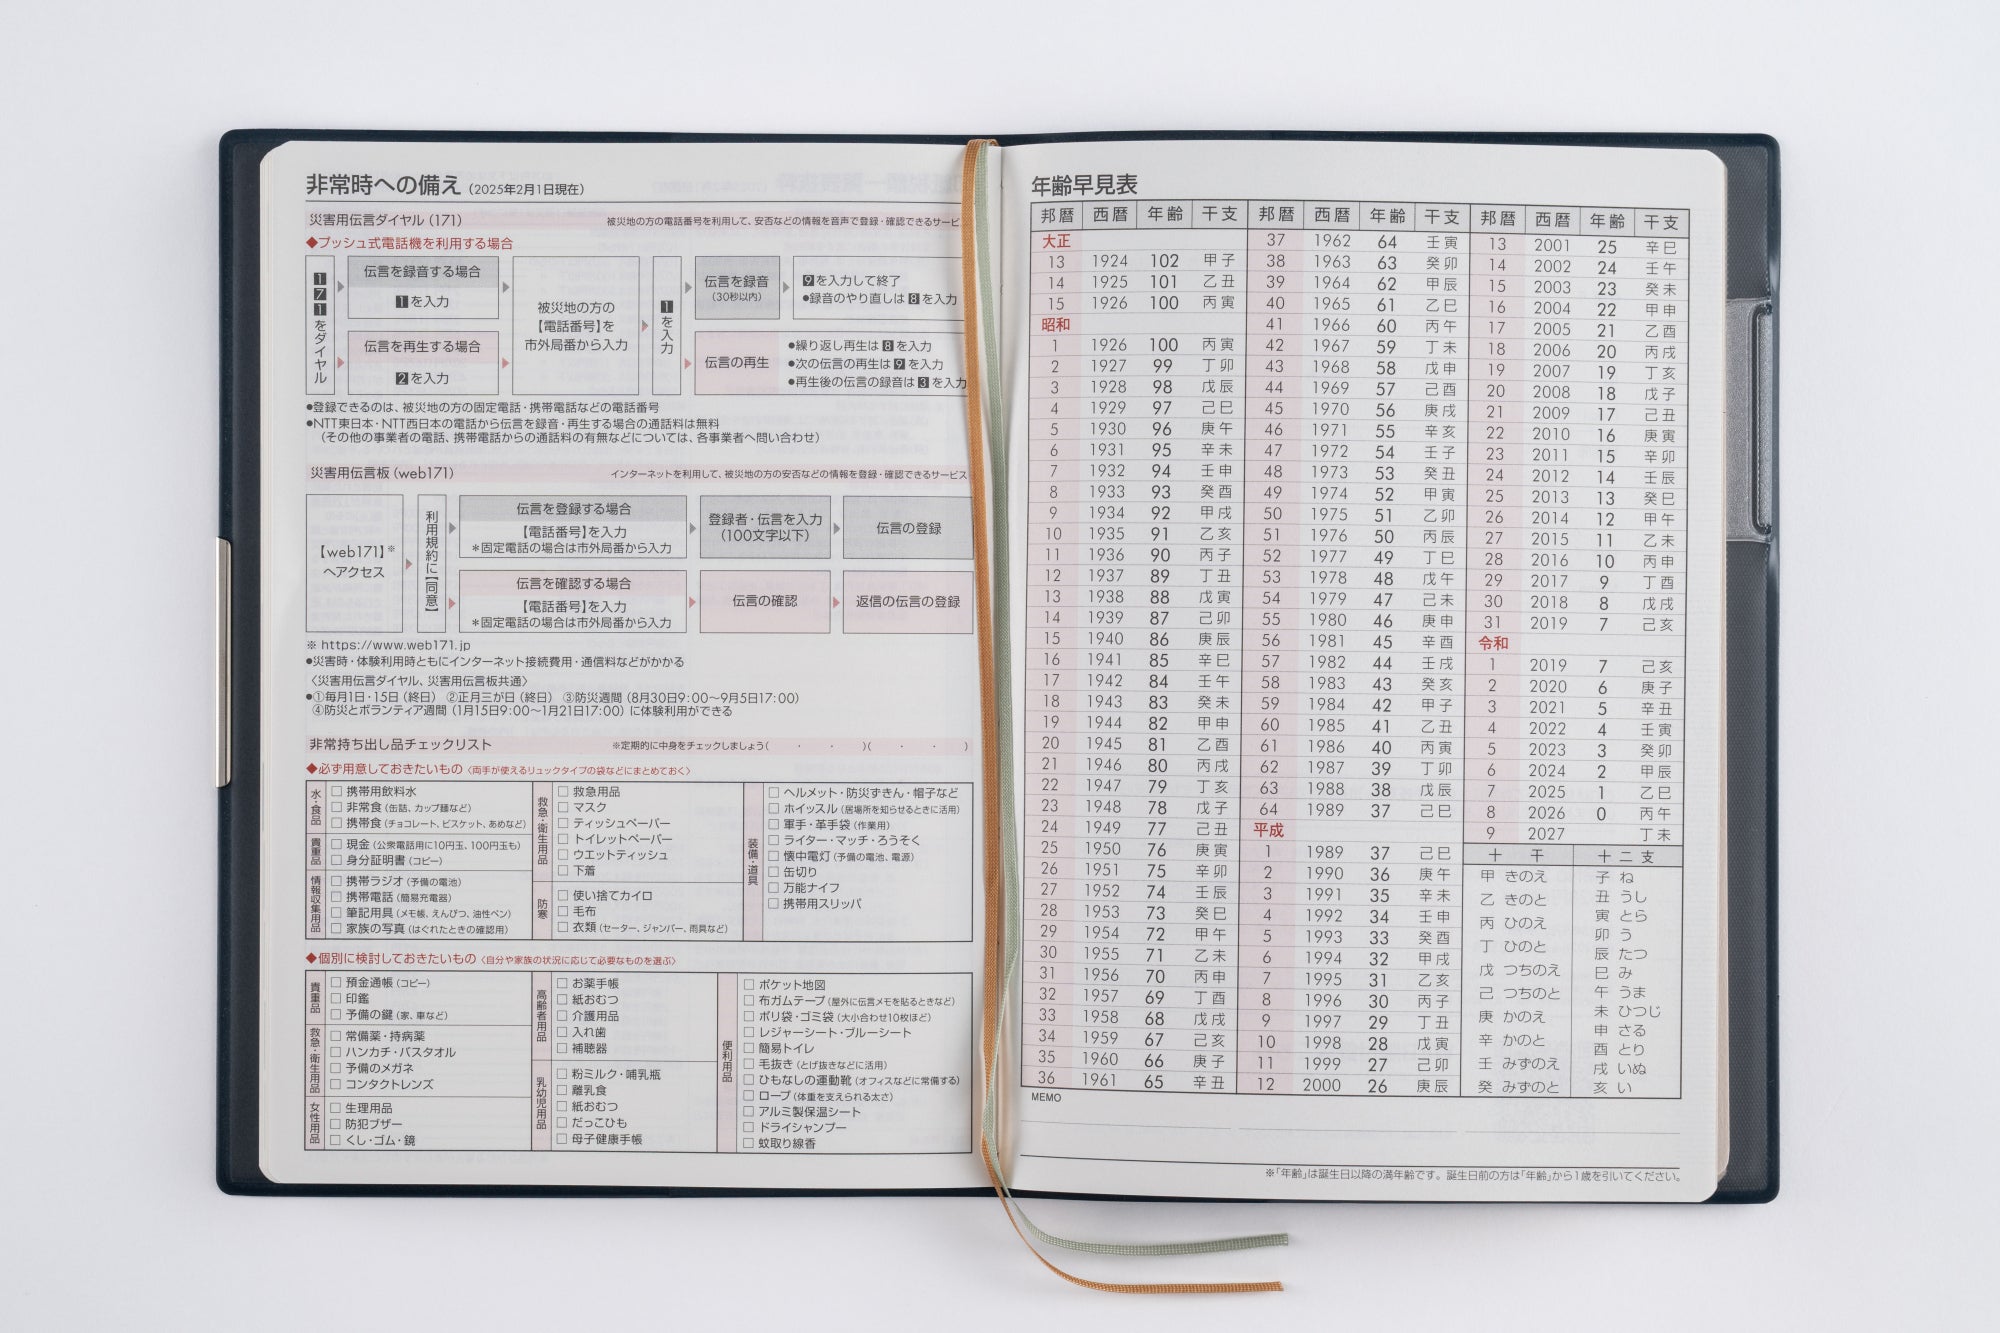 非常時への備え（2025年2月1日現在）
災害用伝言ダイヤル（171） 被災地の方の電話番号を利用して、安否などの情報を音声で登録・確認できるサービ
◆プッシュ式電話機を利用する場合
171をダイヤル
伝言を録音する場合
1を入力
伝言を再生する場合
2を入力
被災地の方の
【電話番号】を
市外局番から入力
1を入力
伝言を録音
（30秒以内）
9を入力して終了
●録音のやり直しは8を入力
伝言の再生
●繰り返し再生は8を入力
●次の伝言の再生は9を入力
●再生後の伝言の録音は3を入力
●登録できるのは、被災地の方の固定電話・携帯電話などの電話番号
●NTT東日本・NTT西日本の電話から伝言を録音・再生する場合の通話料は無料
（その他の事業者の電話、携帯電話からの通話料の有無などについては、各事業者へ問い合わせ）
災害用伝言板（web171） インターネットを利用して、被災地の方の安否などの情報を登録・確認できるサービス
【web171】※
へアクセス
利用規約に【同意】
伝言を登録する場合
【電話番号】を入力
＊固定電話の場合は市外局番から入力
登録者・伝言を入力
（100文字以下）
伝言の登録
伝言を確認する場合
【電話番号】を入力
＊固定電話の場合は市外局番から入力
伝言の確認
返信の伝言の登録
※ https://www.web171.jp
●災害時・体験利用時ともにインターネット接続費用・通信料などがかかる
〈災害用伝言ダイヤル、災害用伝言板共通〉
●①毎月1日・15日（終日） ②正月三が日（終日） ③防災週間（8月30日9:00～9月5日17:00）
④防災とボランティア週間（1月15日9:00～1月21日17:00）に体験利用ができる
非常持ち出し品チェックリスト ※定期的に中身をチェックしましょう（ ・ ・ ）（ ・ ・ ）
◆必ず用意しておきたいもの〈両手が使えるリュックタイプの袋などにまとめておく〉
水・食品
□ 携帯用飲料水
□ 非常食（缶詰、カップ麺など）
□ 携帯食（チョコレート、ビスケット、あめなど）
貴重品
□ 現金（公衆電話用に10円玉、100円玉も）
□ 身分証明書（コピー）
情報収集用品
□ 携帯ラジオ（予備の電池）
□ 携帯電話（簡易充電器）
□ 筆記用具（メモ帳、えんぴつ、油性ペン）
□ 家族の写真（はぐれたときの確認用）
救急・衛生用品
□ 救急用品
□ マスク
□ ティッシュペーパー
□ トイレットペーパー
□ ウエットティッシュ
□ 下着
防寒
□ 使い捨てカイロ
□ 毛布
□ 衣類（セーター、ジャンパー、雨具など）
装備・道具
□ ヘルメット・防災ずきん・帽子など
□ ホイッスル（居場所を知らせるときに活用）
□ 軍手・革手袋（作業用）
□ ライター・マッチ・ろうそく
□ 懐中電灯（予備の電池、電源）
□ 缶切り
□ 万能ナイフ
□ 携帯用スリッパ
◆個別に検討しておきたいもの〈自分や家族の状況に応じて必要なものを選ぶ〉
貴重品
□ 預金通帳（コピー）
□ 印鑑
□ 予備の鍵（家、車など）
救急・衛生用品
□ 常備薬・持病薬
□ ハンカチ・バスタオル
□ 予備のメガネ
□ コンタクトレンズ
女性用品
□ 生理用品
□ 防犯ブザー
□ くし・ゴム・鏡
高齢者用品
□ お薬手帳
□ 紙おむつ
□ 介護用品
□ 入れ歯
□ 補聴器
乳幼児用品
□ 粉ミルク・哺乳瓶
□ 離乳食
□ 紙おむつ
□ だっこひも
□ 母子健康手帳
便利用品
□ ポケット地図
□ 布ガムテープ（屋外に伝言メモを貼るときなど）
□ ポリ袋・ゴミ袋（大小合わせ10枚ほど）
□ レジャーシート・ブルーシート
□ 簡易トイレ
□ 毛抜き（とげ抜きなどに活用）
□ ひもなしの運動靴（オフィスなどに常備する）
□ ロープ（体重を支えられる太さ）
□ アルミ製保温シート
□ ドライシャンプー
□ 蚊取り線香
年齢早見表
邦暦 西暦 年齢 干支
大正
13 1924 102 甲子
14 1925 101 乙丑
15 1926 100 丙寅
昭和
1 1926 100 丙寅
2 1927 99 丁卯
3 1928 98 戊辰
4 1929 97 己巳
5 1930 96 庚午
6 1931 95 辛未
7 1932 94 壬申
8 1933 93 癸酉
9 1934 92 甲戌
10 1935 91 乙亥
11 1936 90 丙子
12 1937 89 丁丑
13 1938 88 戊寅
14 1939 87 己卯
15 1940 86 庚辰
16 1941 85 辛巳
17 1942 84 壬午
18 1943 83 癸未
19 1944 82 甲申
20 1945 81 乙酉
21 1946 80 丙戌
22 1947 79 丁亥
23 1948 78 戊子
24 1949 77 己丑
25 1950 76 庚寅
26 1951 75 辛卯
27 1952 74 壬辰
28 1953 73 癸巳
29 1954 72 甲午
30 1955 71 乙未
31 1956 70 丙申
32 1957 69 丁酉
33 1958 68 戊戌
34 1959 67 己亥
35 1960 66 庚子
36 1961 65 辛丑
邦暦 西暦 年齢 干支
37 1962 64 壬寅
38 1963 63 癸卯
39 1964 62 甲辰
40 1965 61 乙巳
41 1966 60 丙午
42 1967 59 丁未
43 1968 58 戊申
44 1969 57 己酉
45 1970 56 庚戌
46 1971 55 辛亥
47 1972 54 壬子
48 1973 53 癸丑
49 1974 52 甲寅
50 1975 51 乙卯
51 1976 50 丙辰
52 1977 49 丁巳
53 1978 48 戊午
54 1979 47 己未
55 1980 46 庚申
56 1981 45 辛酉
57 1982 44 壬戌
58 1983 43 癸亥
59 1984 42 甲子
60 1985 41 乙丑
61 1986 40 丙寅
62 1987 39 丁卯
63 1988 38 戊辰
64 1989 37 己巳
平成
1 1989 37 己巳
2 1990 36 庚午
3 1991 35 辛未
4 1992 34 壬申
5 1993 33 癸酉
6 1994 32 甲戌
7 1995 31 乙亥
8 1996 30 丙子
9 1997 29 丁丑
10 1998 28 戊寅
11 1999 27 己卯
12 2000 26 庚辰
邦暦 西暦 年齢 干支
13 2001 25 辛巳
14 2002 24 壬午
15 2003 23 癸未
16 2004 22 甲申
17 2005 21 乙酉
18 2006 20 丙戌
19 2007 19 丁亥
20 2008 18 戊子
21 2009 17 己丑
22 2010 16 庚寅
23 2011 15 辛卯
24 2012 14 壬辰
25 2013 13 癸巳
26 2014 12 甲午
27 2015 11 乙未
28 2016 10 丙申
29 2017 9 丁酉
30 2018 8 戊戌
31 2019 7 己亥
令和
1 2019 7 己亥
2 2020 6 庚子
3 2021 5 辛丑
4 2022 4 壬寅
5 2023 3 癸卯
6 2024 2 甲辰
7 2025 1 乙巳
8 2026 0 丙午
9 2027 丁未
十干
甲 きのえ
乙 きのと
丙 ひのえ
丁 ひのと
戊 つちのえ
己 つちのと
庚 かのえ
辛 かのと
壬 みずのえ
癸 みずのと
十二支
子 ね
丑 うし
寅 とら
卯 う
辰 たつ
巳 み
午 うま
未 ひつじ
申 さる
酉 とり
戌 いぬ
亥 い
MEMO
※「年齢」は誕生日以降の満年齢です。誕生日前の方は「年齢」から1歳を引いてください。